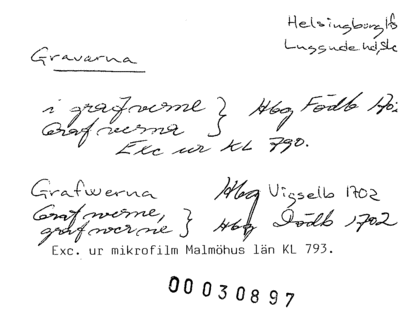 Helsingborg lfs
Luggude hd, Sk
Gravarna
i grafverne } Hbg Födb 170
Grafverna }
Exc ur KL 790.
Grafwerna Hbg Vigselb 1702
Grafverne, } Hbg Dödb 1702
grafverne }
Exc. ur mikrofilm Malmöhus län KL 793.
00030897